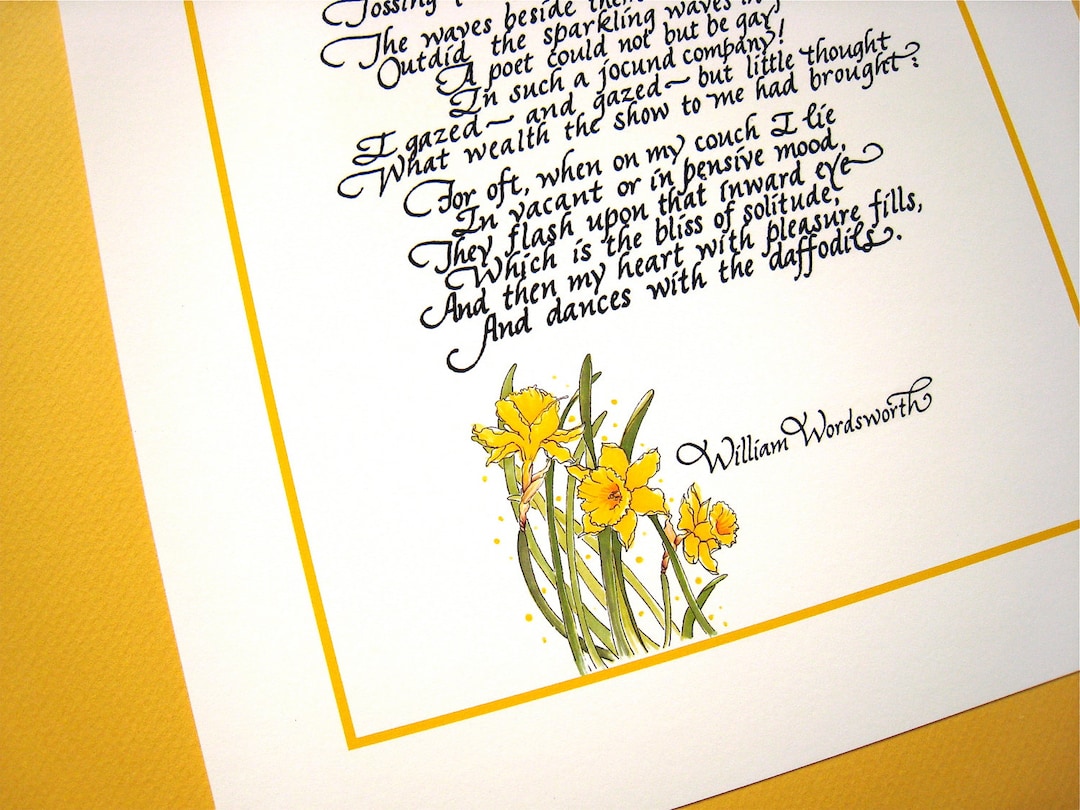 Tossing
The waves beside them
Outdid the sparkling waves in
A poet could not but be gay,
In such a jocund company!
I gazed — and gazed — but little thought
What wealth the show to me had brought:
For oft, when on my couch I lie
In vacant or in pensive mood,
They flash upon that inward eye
Which is the bliss of solitude,
And then my heart with pleasure fills,
And dances with the daffodils.
William Wordsworth